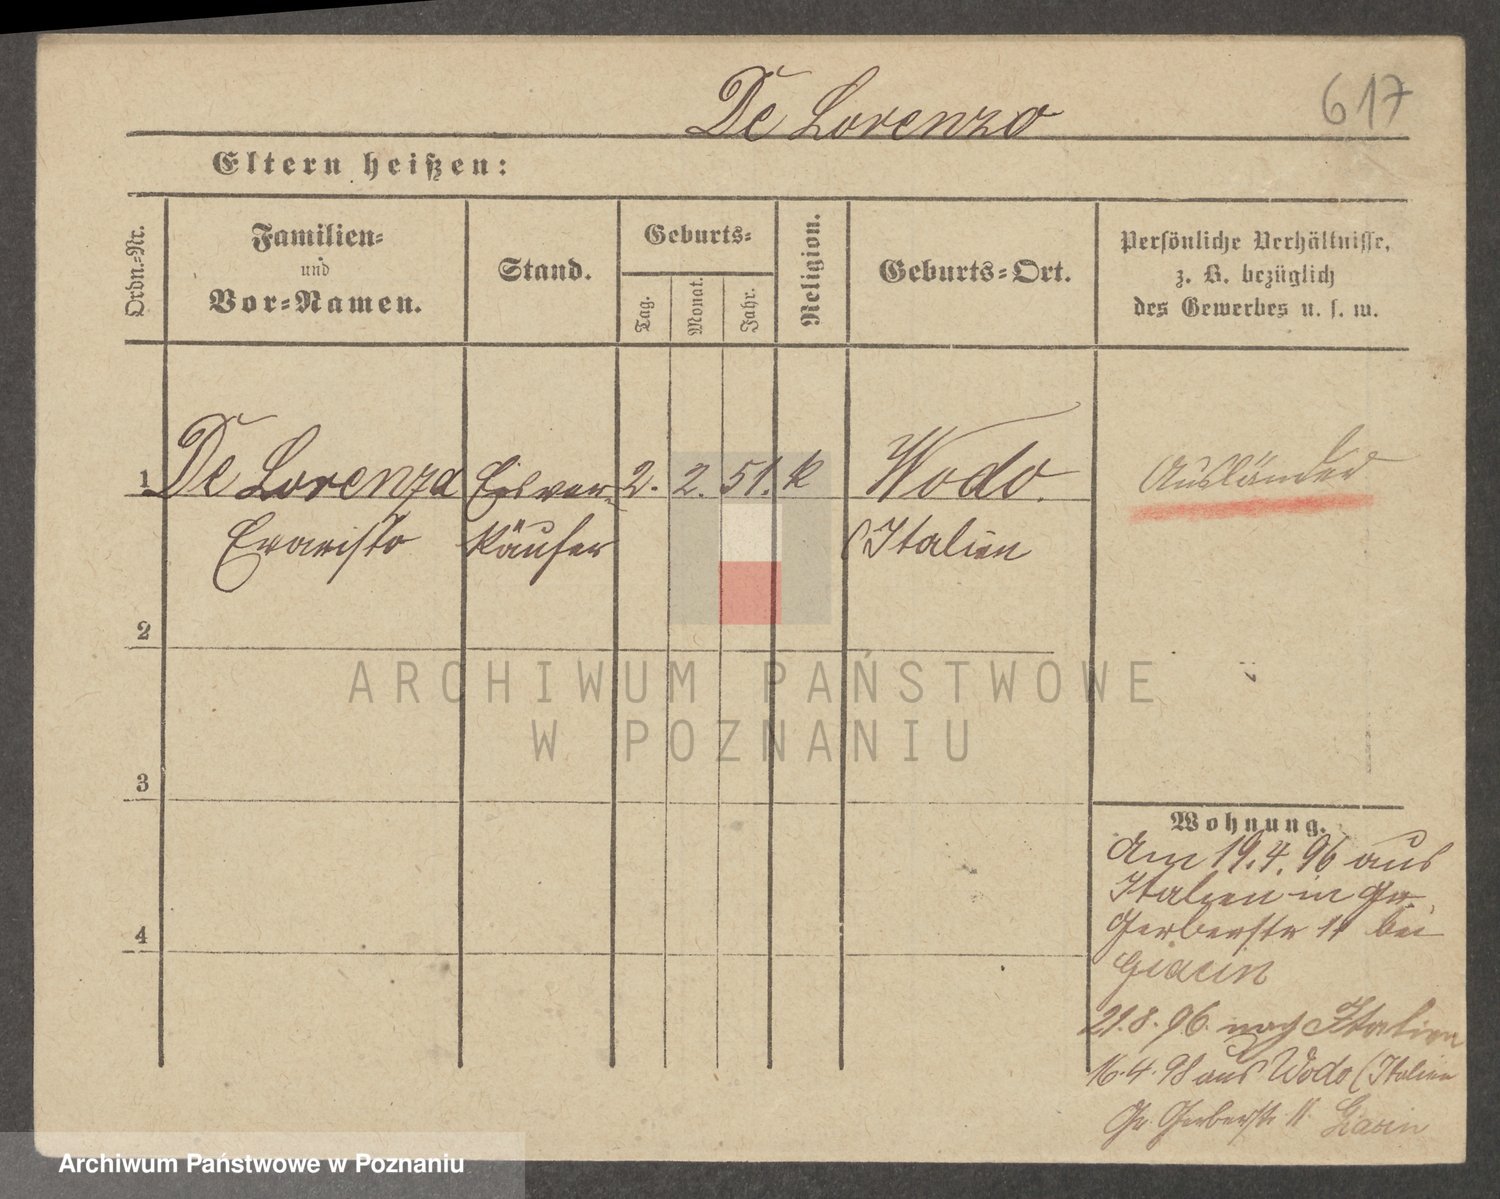 617
De Lorenzo
Eltern heißen:
Ordn.-Nr.
Familien-
und
Vor-Namen.
Stand.
Geburts-
Tag.
Monat.
Jahr.
Religion.
Geburts-Ort.
Persönliche Verhältnisse,
z. B. bezüglich
des Gewerbes u. s. w.
1 De Lorenzo Eisver- 2. 2. 51. k Wodo. Ausländer
Evaristo käufer (Italien
2
3
4
Wohnung.
Am 19.4.96 aus
Italien in Gr.
Gerberstr 11 bei
Giacin
21.8.96. nach Italien
16.4.98 aus Wodo (Italien
Gr. Gerberstr. 11 Giacin
ARCHIWUM PAŃSTWOWE
W POZNANIU
Archiwum Państwowe w Poznaniu